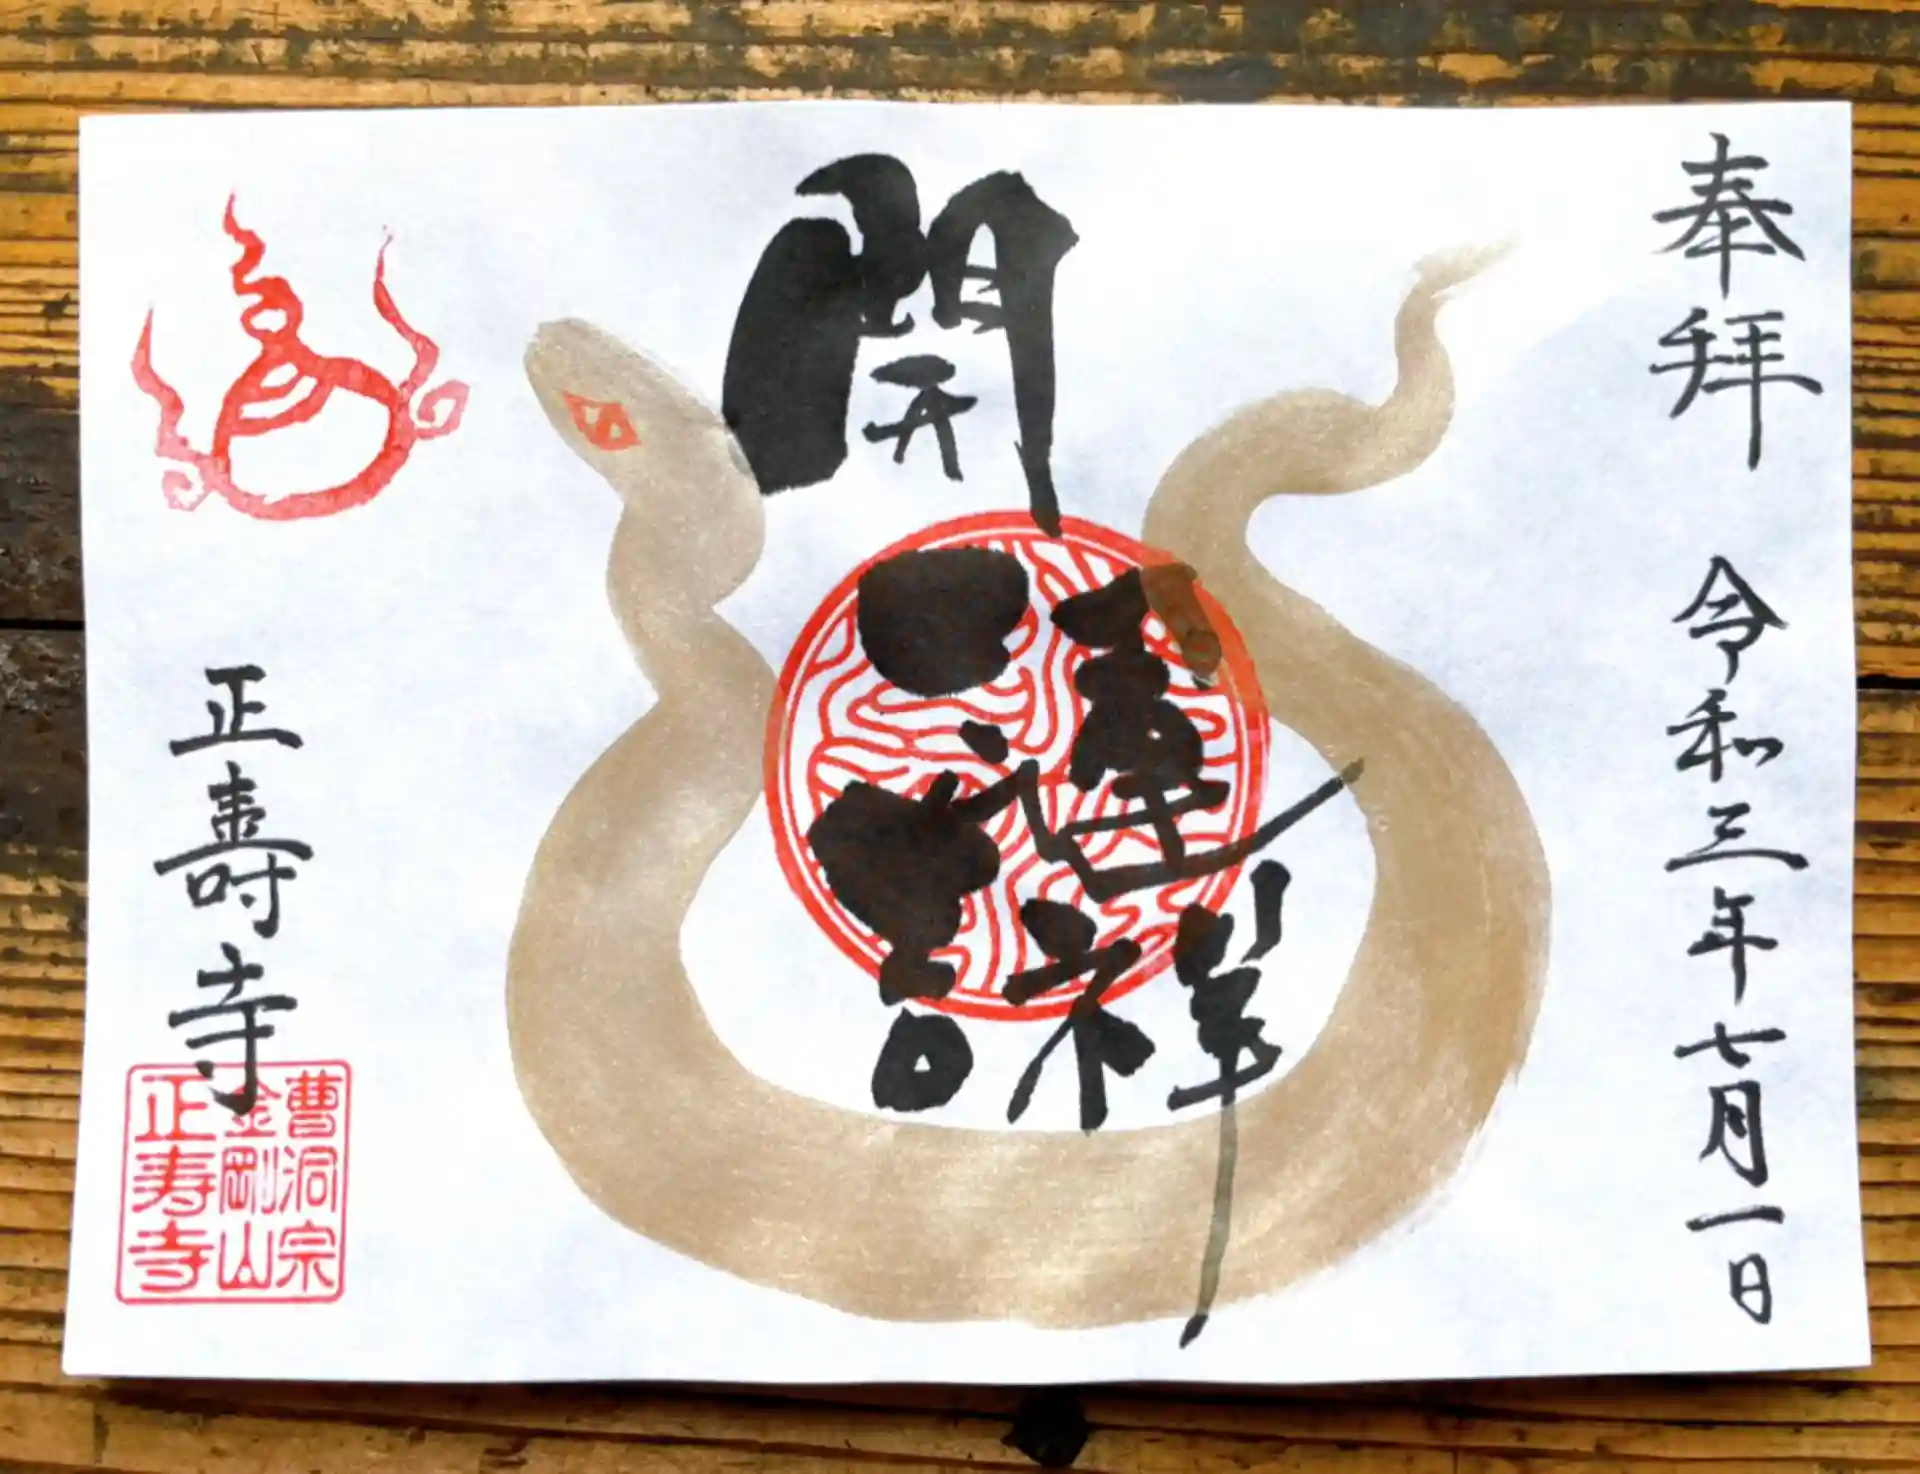 奉拝 令和三年七月一日
開運
吉祥
正壽寺
曹洞宗
金剛山
正寿寺